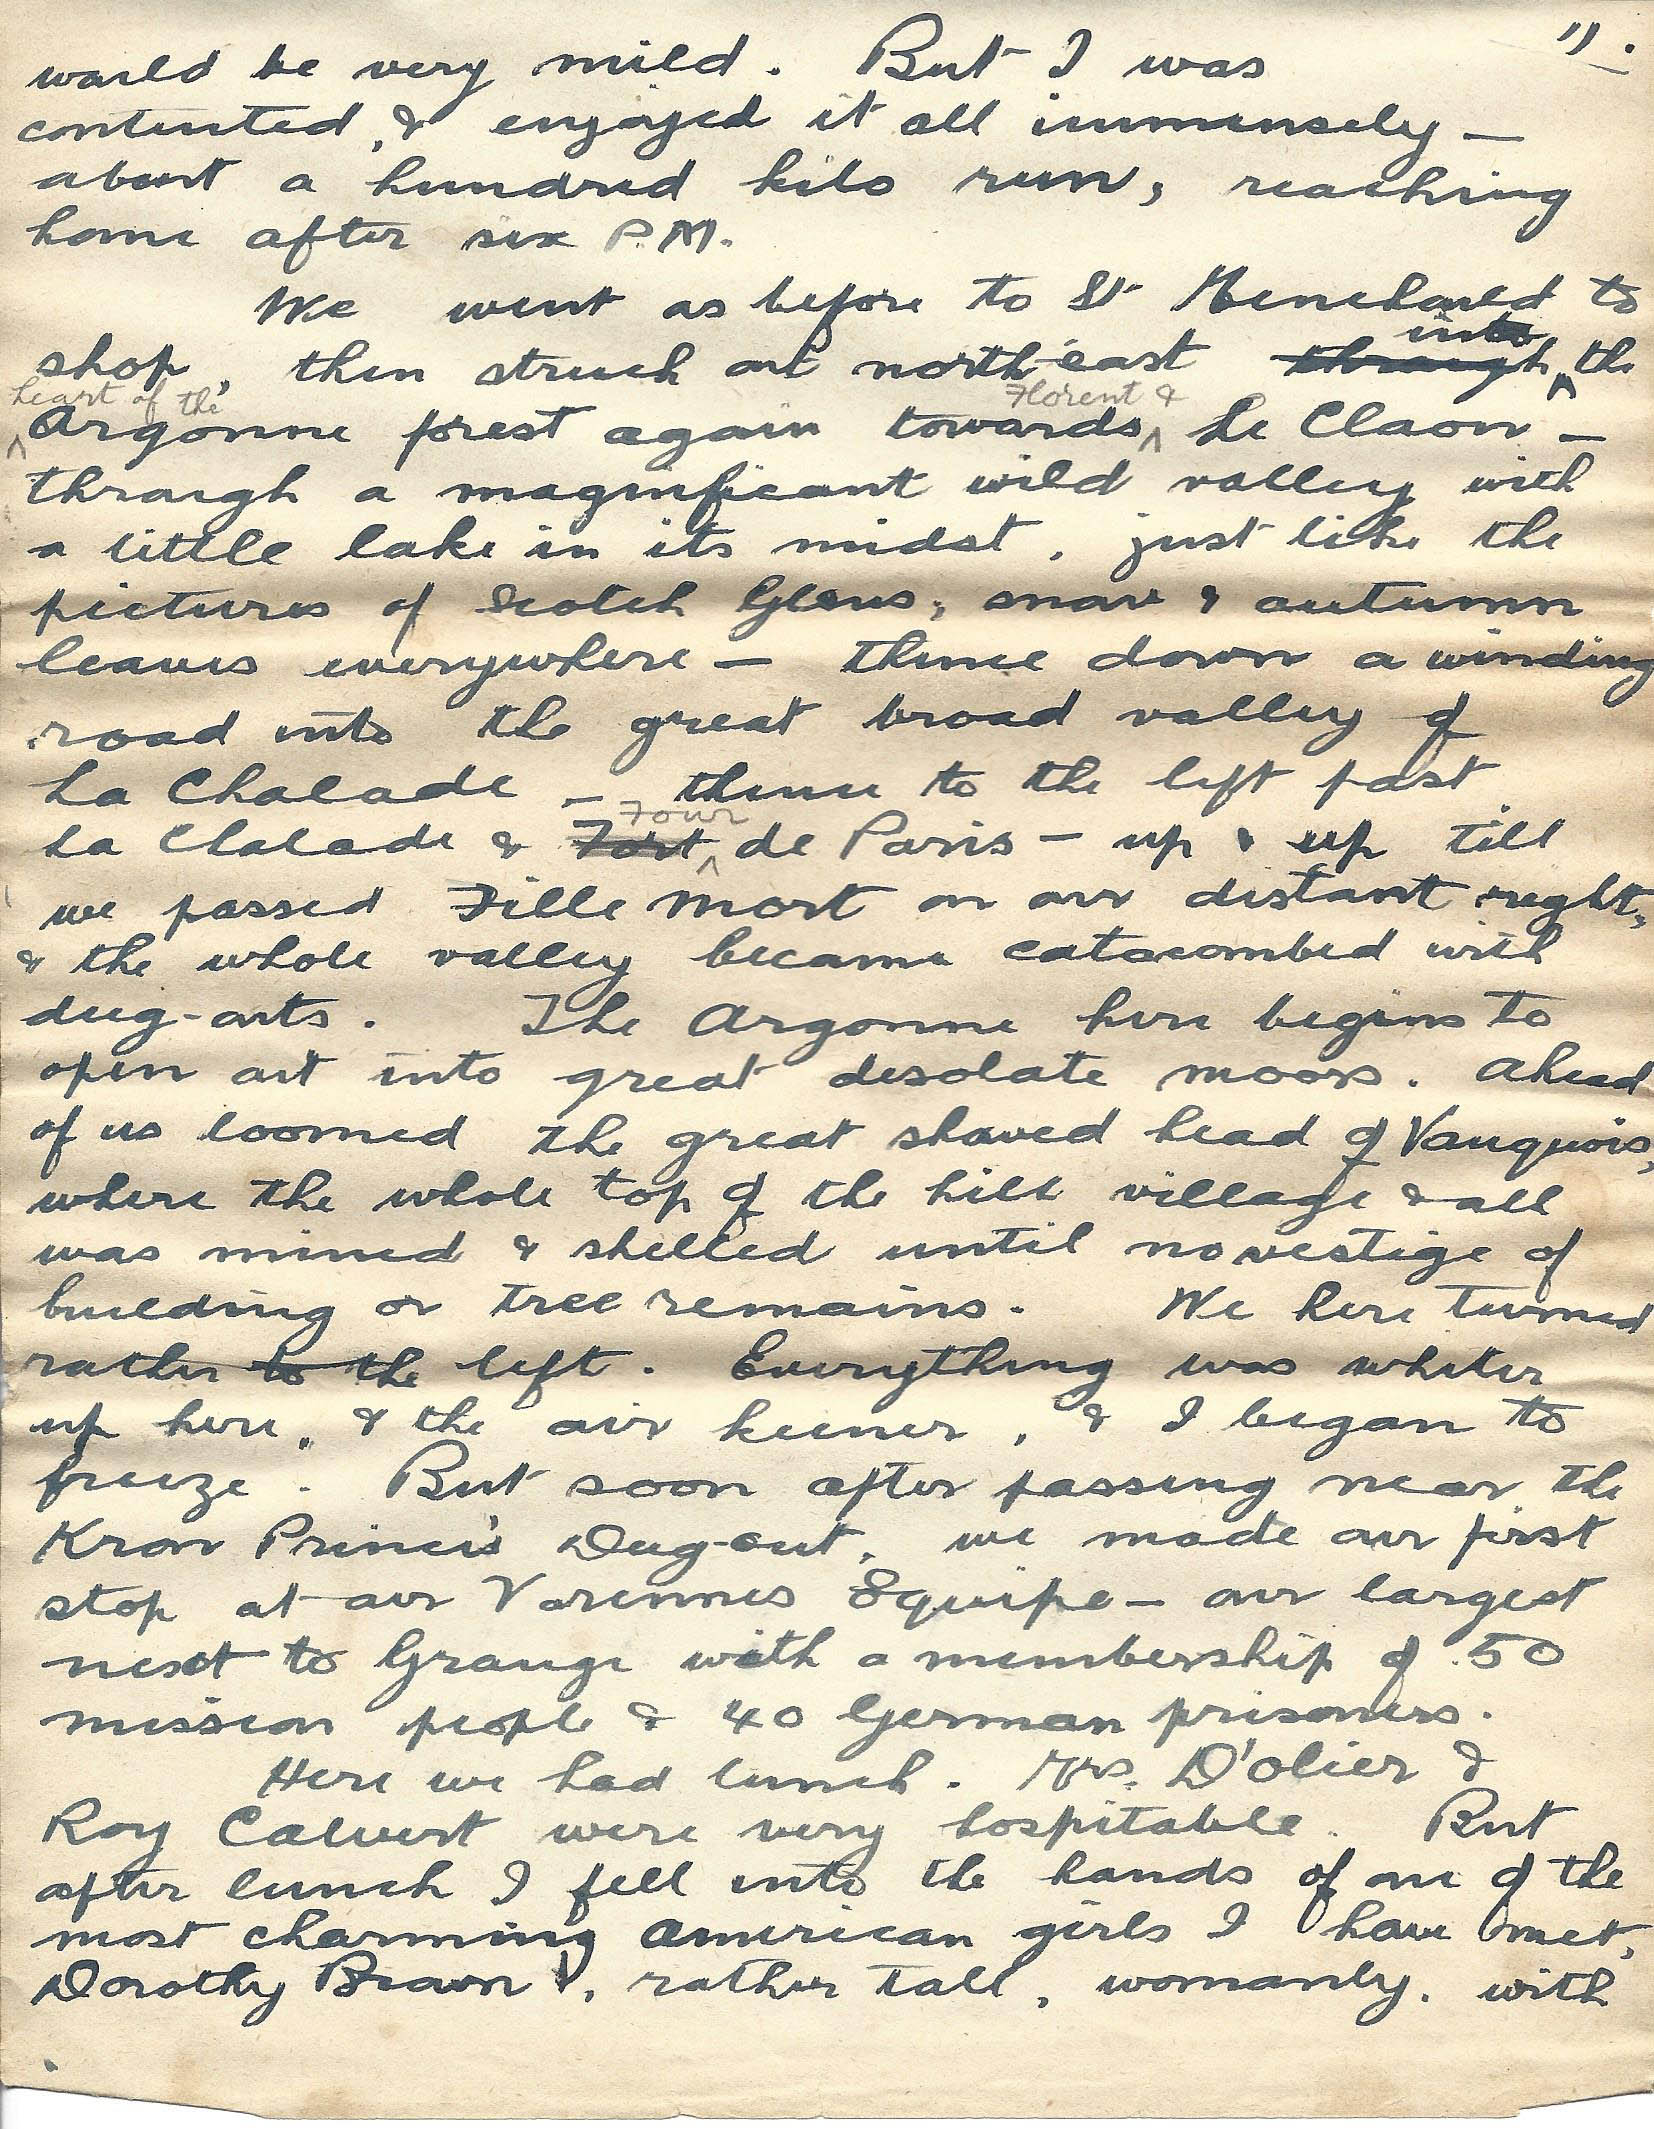 11.
would be very mild. But I was
contented, & enjoyed it all immensely —
about a hundred kilo run, reaching
home after six P.M.
We went as before to St Menehould to
shop, then struck out north-east ~~through~~ into the
heart of the Argonne forest again towards Florent & Le Claon —
through a magnificant wild valley with
a little lake in its midst, just like the
pictures of Scotch Glens, snow & autumn
leaves everywhere — thence down a winding
road into the great broad valley of
La Chalade — thence to the left past
La Chalade & ~~Fort~~ Four de Paris — up & up till
we passed Fille Mort on our distant right,
& the whole valley became catacombed with
dug-outs. The Argonne here begins to
open out into great desolate moors. Ahead
of us loomed the great shaved head of Vauquois,
where the whole top of the hill village & all
was mined & shelled until no vestige of
building or tree remains. We here turned
rather ~~to the~~ left. Everything was whiter
up here, & the air keener, & I began to
freeze. But soon after passing near the
Kron Prince's Dug-out, we made our first
stop at our Varennes Equipe — our largest
next to Grange with a membership of 50
mission people & 40 German prisoners.
Here we had lunch. Mrs. D'Olier &
Roy Calvert were very hospitable. But
after lunch I fell into the hands of one of the
most charming American girls I have met,
Dorothy Brown, rather tall, womanly, with